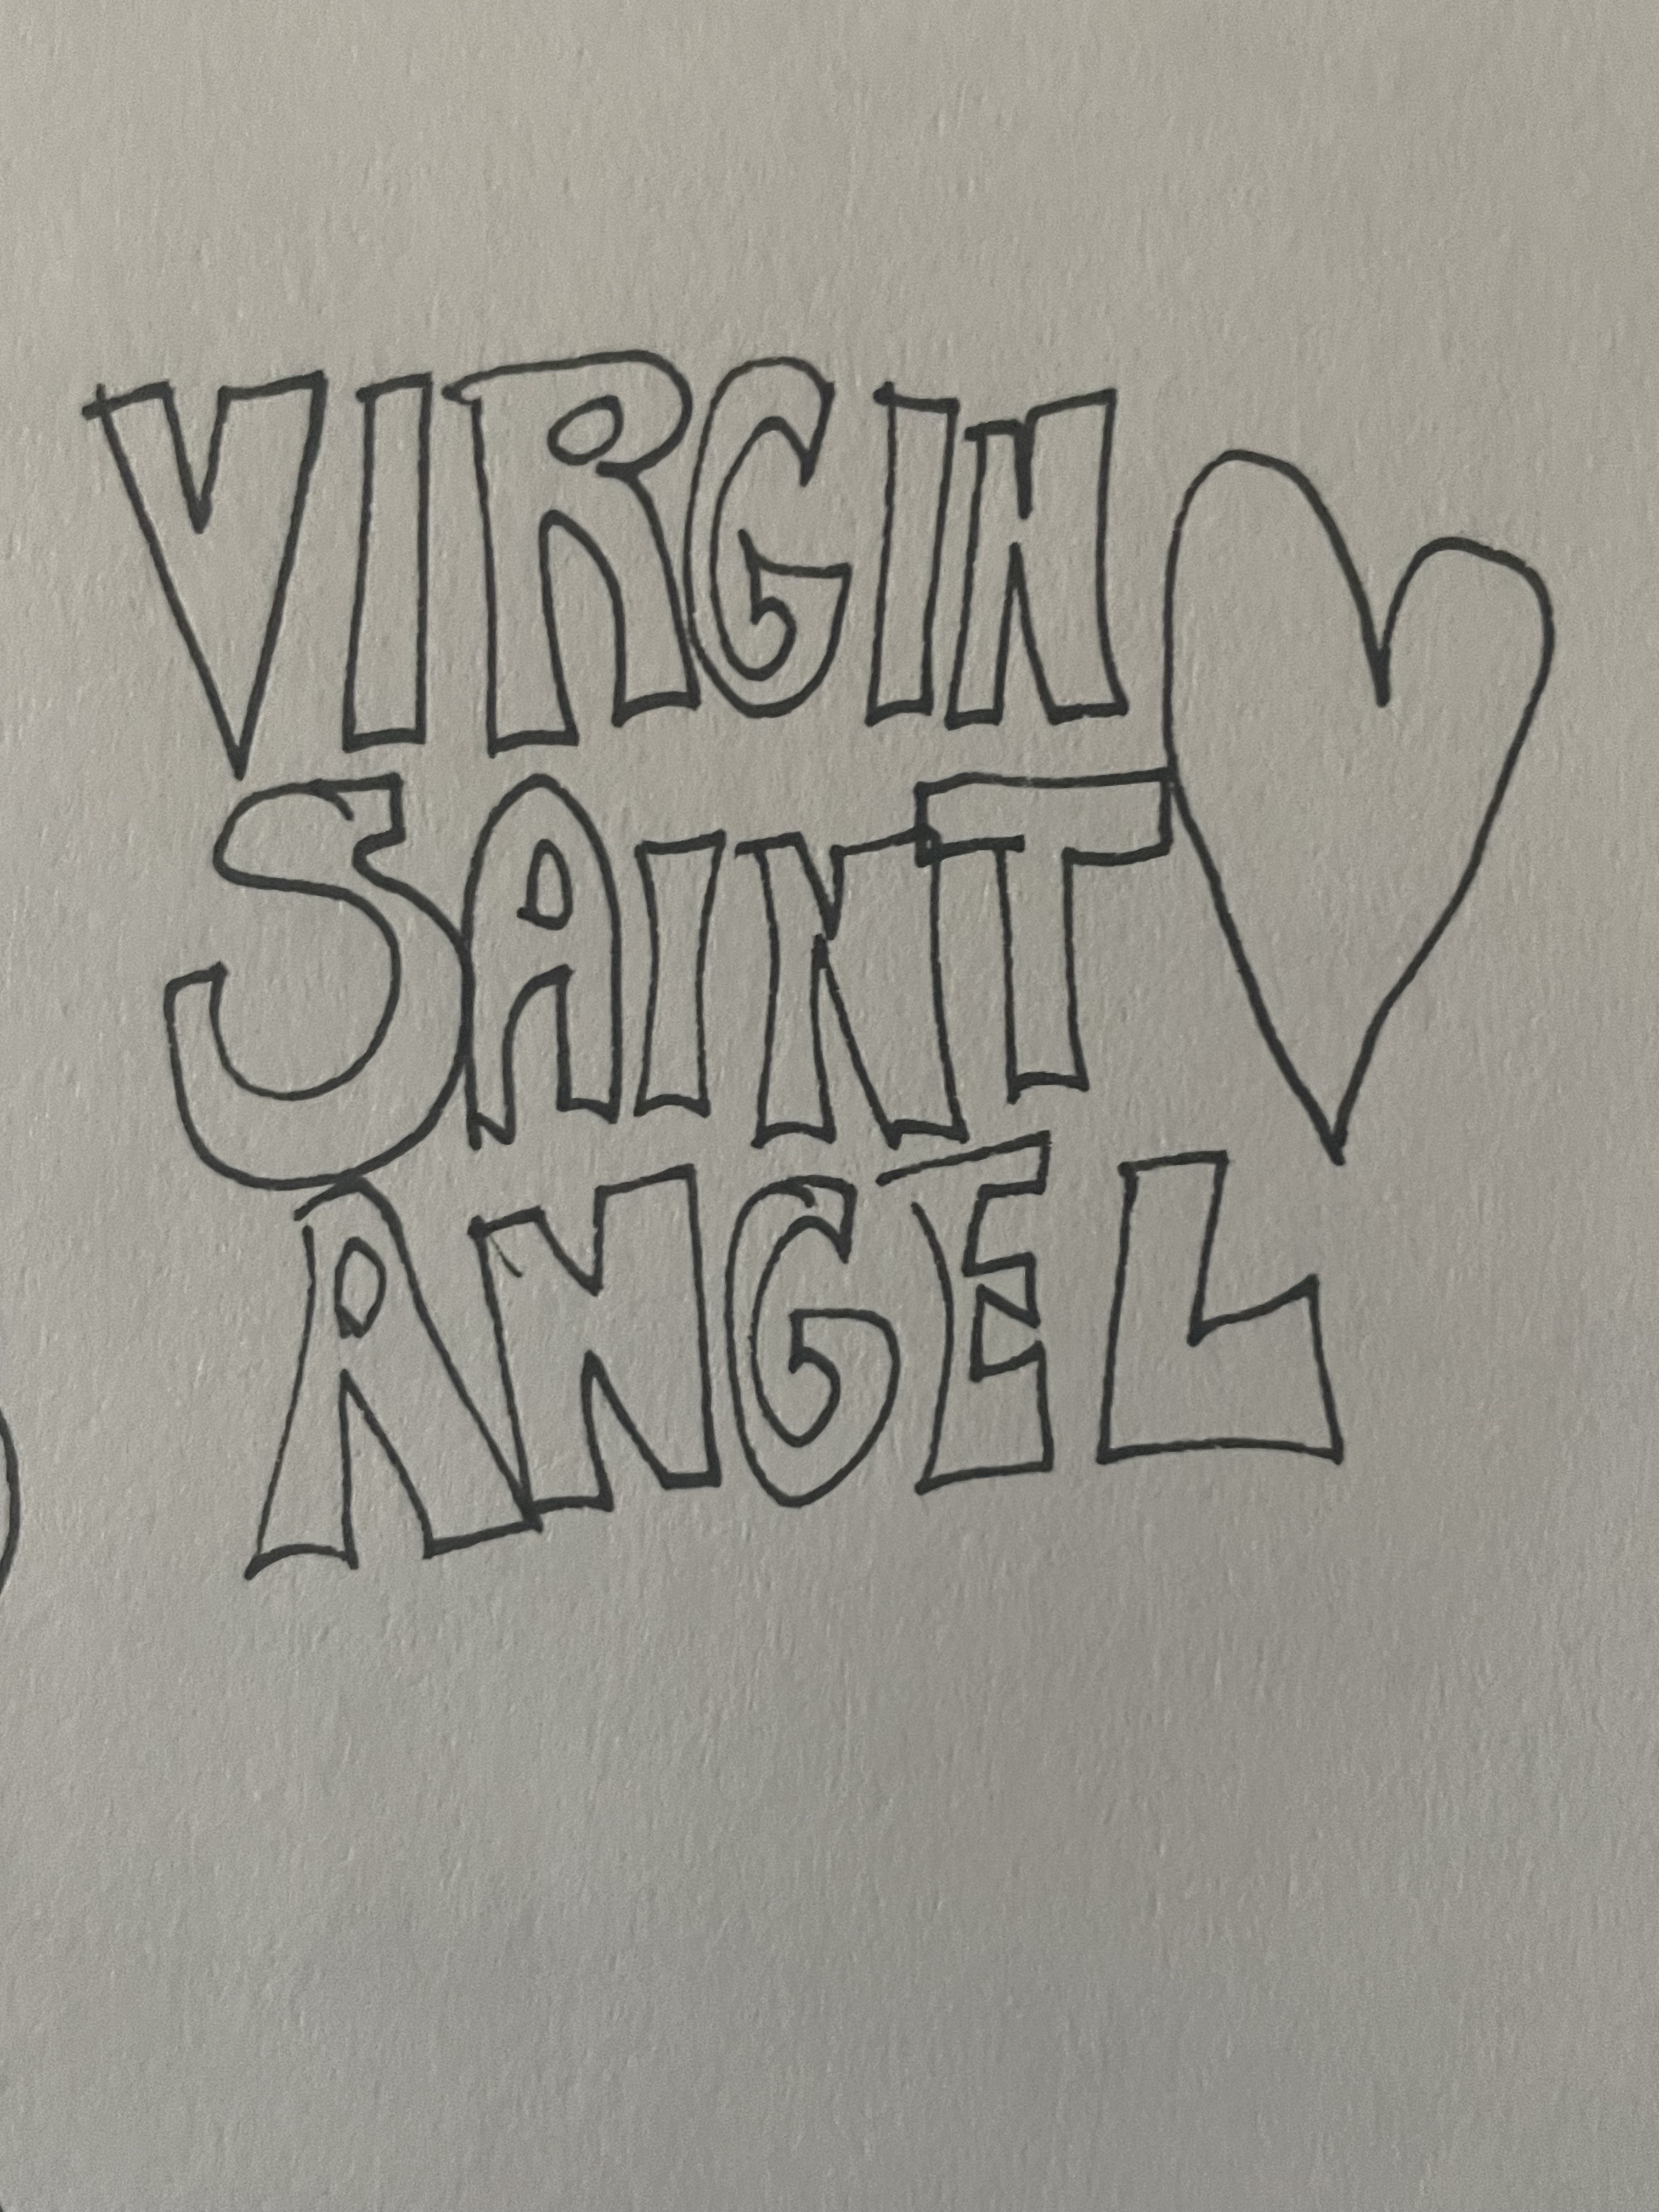 VIRGIN
SAINT
ANGEL